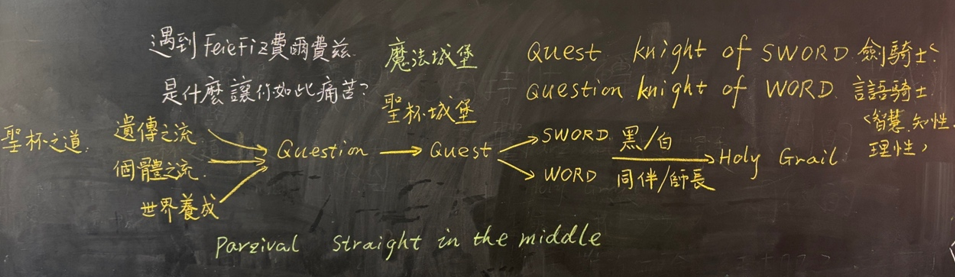 遇到 FeieFiz 費爾費茲.
是什麼讓你如此痛苦?
魔法城堡
聖杯城堡
Quest knight of SWORD 劍騎士
Question knight of WORD. 言語騎士
智慧、知性、
理性,
聖杯之道.
遺傳之流
個體之流.
世界養成
Question → Quest
SWORD 黑/白
WORD 同伴/師長
Holy Grail
Parzival straight in the middle